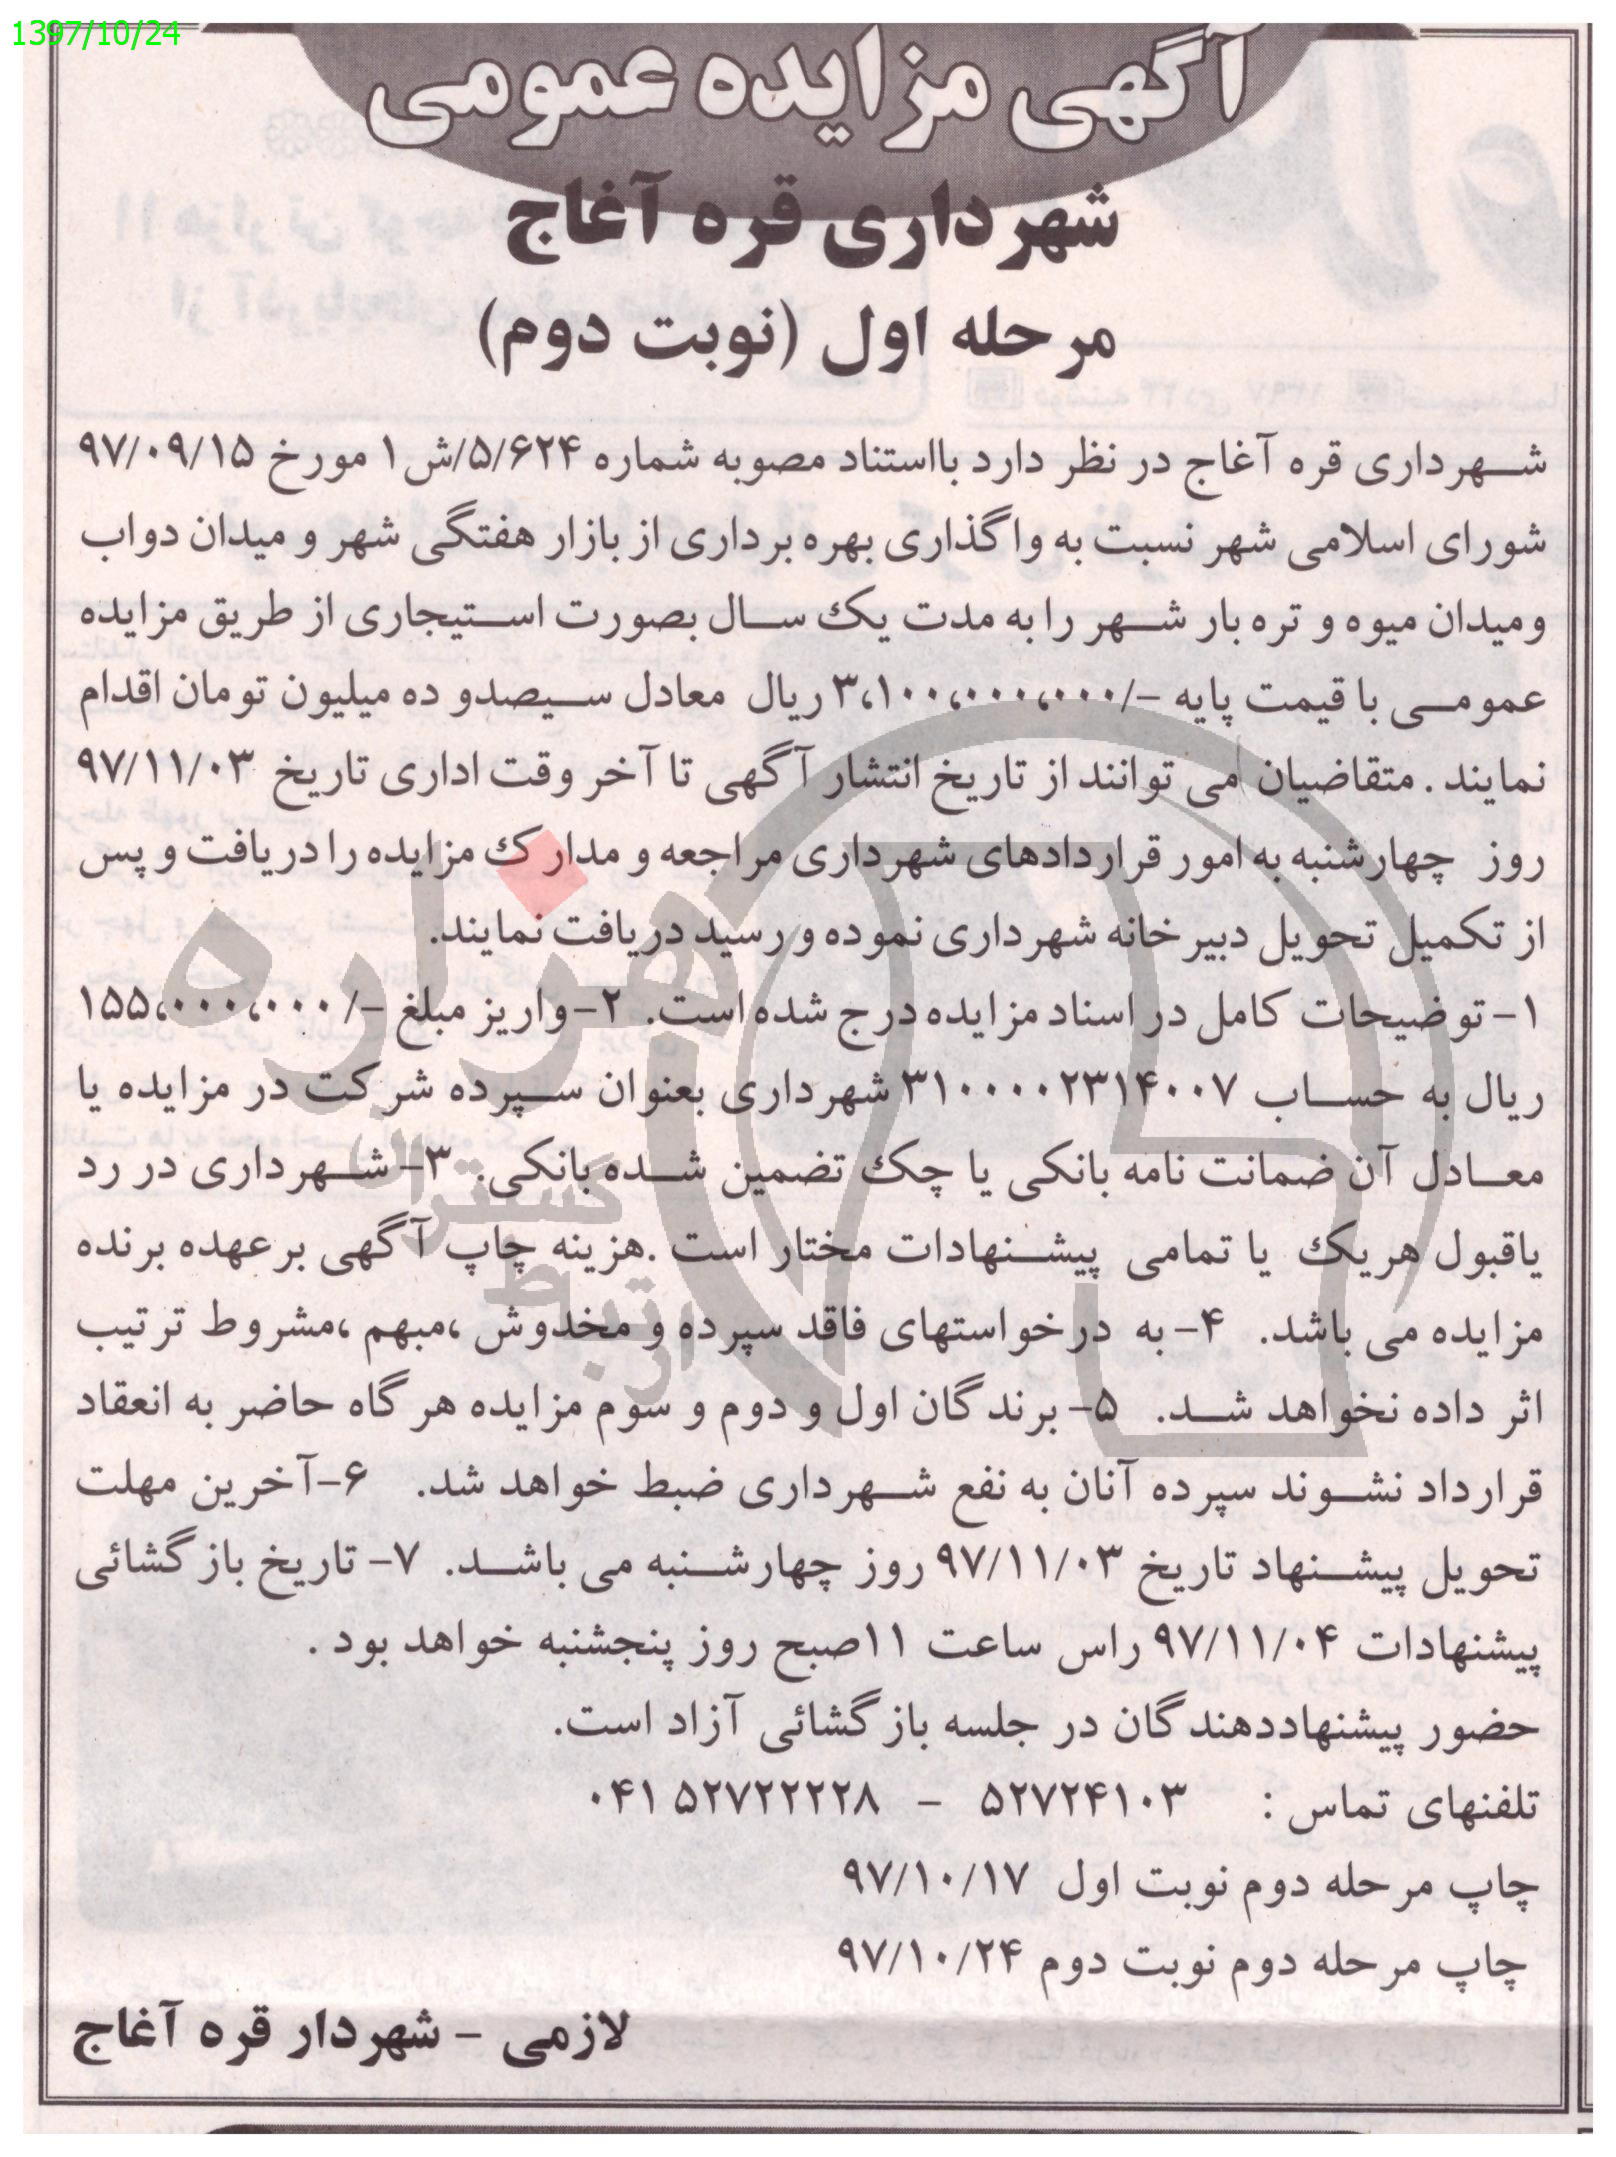 1397/10/24
آگهی مزایده عمومی
شهرداری قره آغاج
مرحله اول (نوبت دوم)
شهرداری قره آغاج در نظر دارد بااستناد مصوبه شماره ۵/۶۲۴/ش۱ مورخ ۹۷/۰۹/۱۵
شورای اسلامی شهر نسبت به واگذاری بهره برداری از بازار هفتگی شهر و میدان دواب
ومیدان میوه و تره بار شهر را به مدت یک سال بصورت استیجاری از طریق مزایده
عمومی با قیمت پایه -/۳،۱۰۰،۰۰۰،۰۰۰ ریال معادل سیصدو ده میلیون تومان اقدام
نمایند . متقاضیان می توانند از تاریخ انتشار آگهی تا آخر وقت اداری تاریخ ۹۷/۱۱/۰۳
روز چهارشنبه به امور قراردادهای شهرداری مراجعه و مدارک مزایده را دریافت و پس
از تکمیل تحویل دبیرخانه شهرداری نموده و رسید دریافت نمایند.
۱- توضیحات کامل در اسناد مزایده درج شده است. ۲-واریز مبلغ -/۱۵۵،۰۰۰،۰۰۰
ریال به حساب ۳۱۰۰۰۰۲۳۱۴۰۰۷ شهرداری بعنوان سپرده شرکت در مزایده یا
معادل آن ضمانت نامه بانکی یا چک تضمین شده بانکی. ۳- شهرداری در رد
یاقبول هریک یا تمامی پیشنهادات مختار است .هزینه چاپ آگهی برعهده برنده
مزایده می باشد. ۴- به درخواستهای فاقد سپرده و مخدوش ،مبهم ،مشروط ترتیب
اثر داده نخواهد شد. ۵- برندگان اول و دوم و سوم مزایده هرگاه حاضر به انعقاد
قرارداد نشوند سپرده آنان به نفع شهرداری ضبط خواهد شد. ۶-آخرین مهلت
تحویل پیشنهاد تاریخ ۹۷/۱۱/۰۳ روز چهارشنبه می باشد. ۷- تاریخ بازگشائی
پیشنهادات ۹۷/۱۱/۰۴ راس ساعت ۱۱صبح روز پنجشنبه خواهد بود .
حضور پیشنهاددهندگان در جلسه بازگشائی آزاد است.
تلفنهای تماس : ۵۲۷۲۴۱۰۳ - ۰۴۱ ۵۲۷۲۲۲۲۸
چاپ مرحله دوم نوبت اول ۹۷/۱۰/۱۷
چاپ مرحله دوم نوبت دوم ۹۷/۱۰/۲۴
لازمی - شهردار قره آغاج
هزاره
گستران
ارتباط